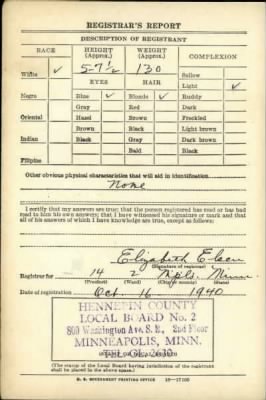 REGISTRAR'S REPORT
DESCRIPTION OF REGISTRANT
RACE HEIGHT (Approx.) WEIGHT (Approx.) COMPLEXION
White ✓ 5-7½ 130 Sallow
EYES HAIR Light ✓
Negro Blue ✓ Blonde ✓ Ruddy
Gray Red Dark
Oriental Hazel Brown Freckled
Brown Black Light brown
Indian Black Gray Dark brown
Bald Black
Filipino
Other obvious physical characteristics that will aid in identification
None
I certify that my answers are true; that the person registered has read or has had
read to him his own answers; that I have witnessed his signature or mark and that
all of his answers of which I have knowledge are true, except as follows:
Elizabeth
(Signature of registrar)
Registrar for 14 2 Mpls. Minn.
(Precinct) (Ward) (City or county) (State)
Date of registration Oct. 16 1940
HENNEPIN COUNTY
LOCAL BOARD No. 2
800 Washington Ave. S. E., 2nd Floor
MINNEAPOLIS, MINN.
(The stamp of the Local Board having jurisdiction of the registrant
shall be placed in the above space.)
U. S. GOVERNMENT PRINTING OFFICE